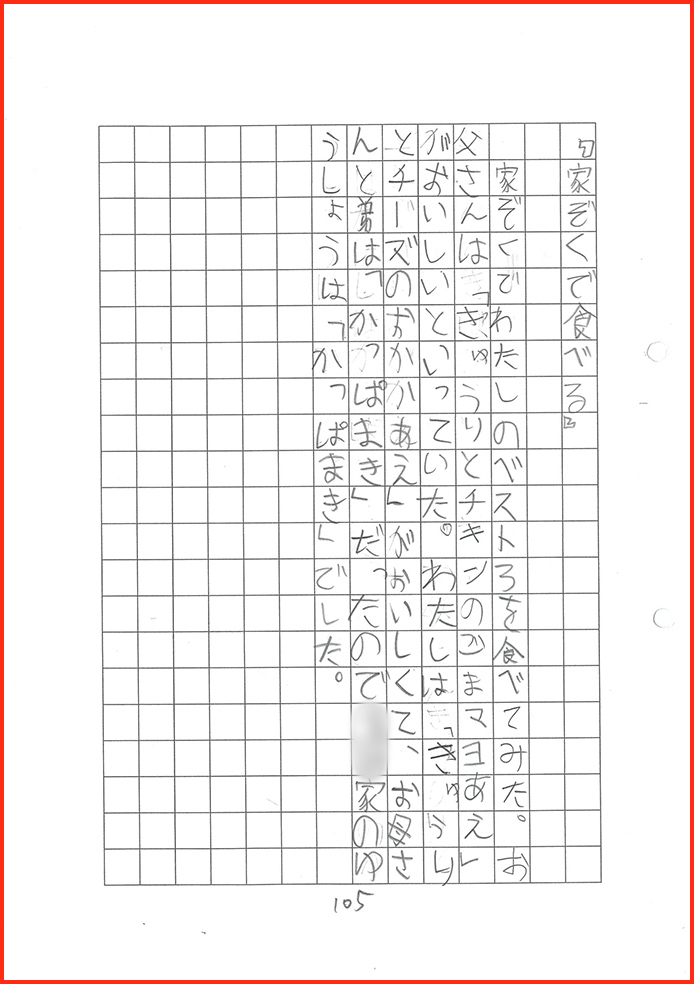 『家ぞくで食べる』
家ぞくでわたしのベスト3を食べてみた。お
父さんは「きゅうりとチキンのごまマヨあえ」
がおいしいといっていた。わたしは「きゅうり
とチーズのおかかあえ」がおいしくて、お母さ
んと弟は「かっぱまき」だったので家のゆ
うしょうは「かっぱまき」でした。
105